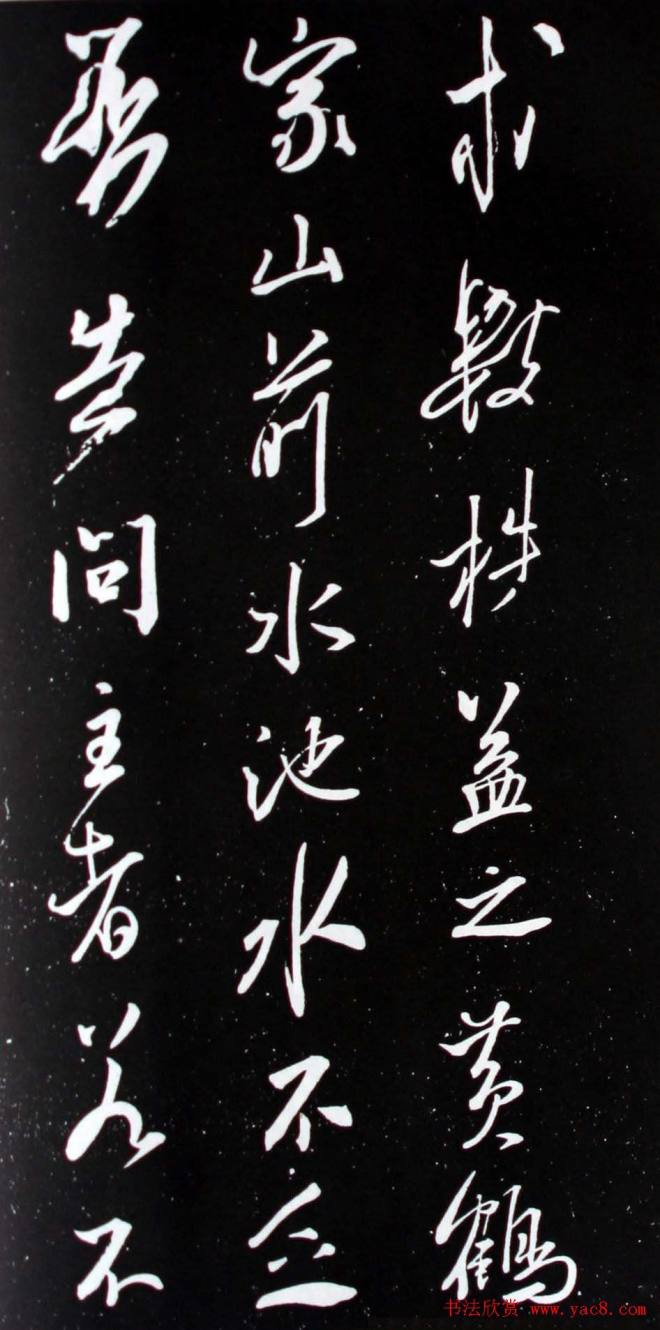 求數株益之黄鶴
家山前水池水不
告問主者若不
书法欣赏 www.yac8.com